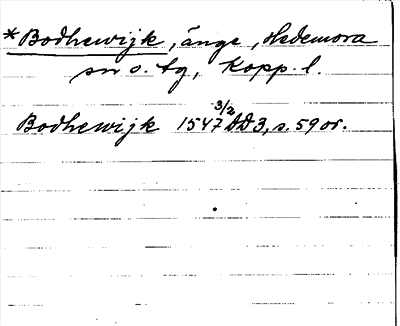 *Bodhewijk, änge, Hedemora
sn o. tg, Kopp. l.
Bodhewijk 1547 3/2 DD3, s. 59 or.